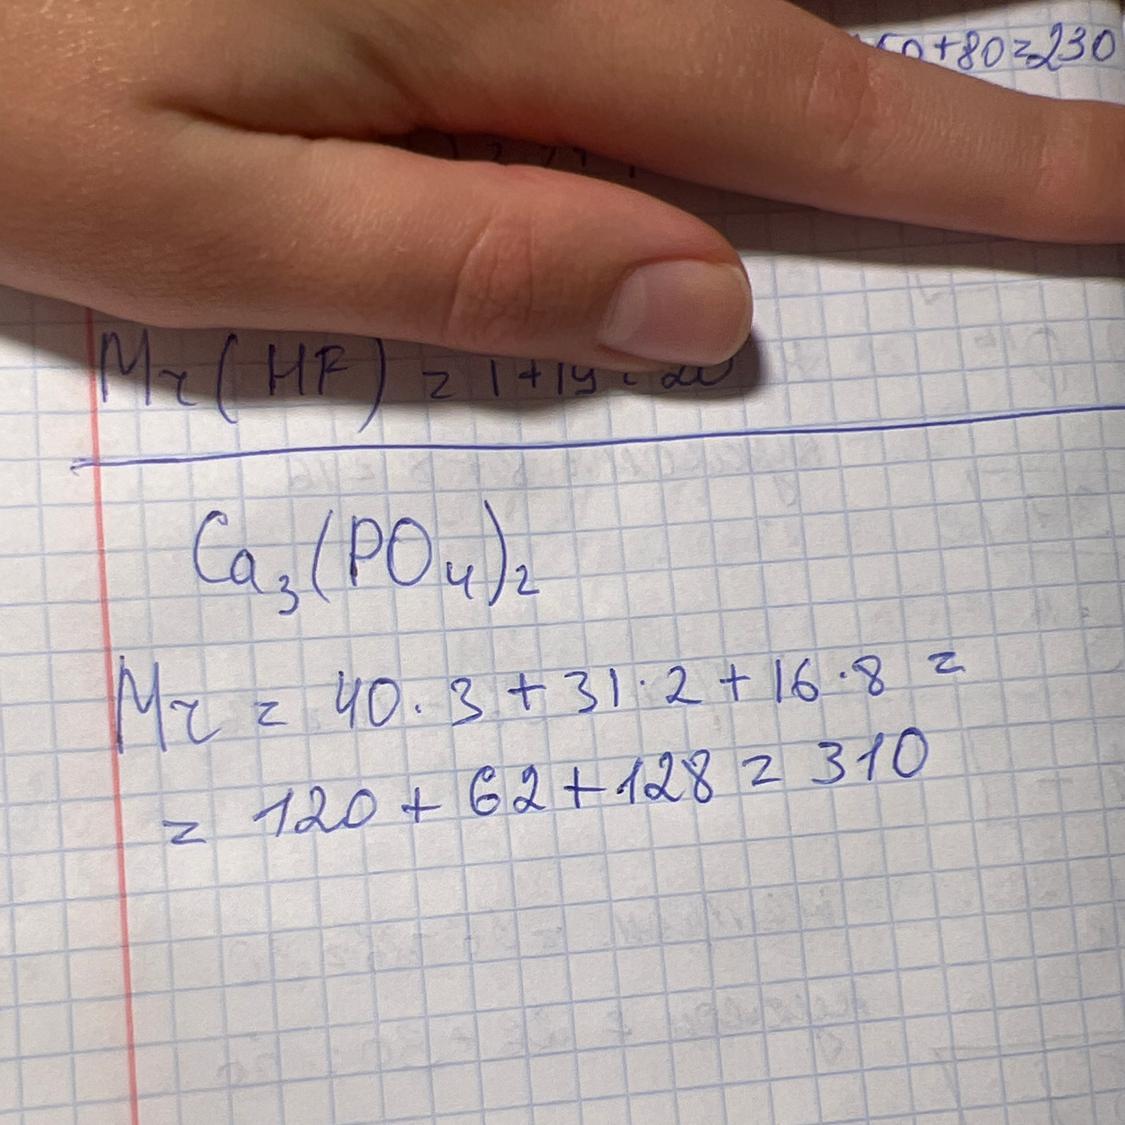 +80=230
Mr(HF) = 1+19=20
Ca₃(PO₄)₂
Mr = 40·3+31·2+16·8 =
= 120+62+128=310